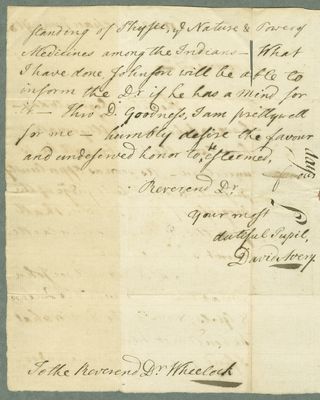 standing of Physic, & Nature & Powers
Medicines among the Indians — What
I have done Johnson will be able to
inform the Dr. if he has a mind for
it — Thro' D. Goodness, I am pretty well
for me — humbly desire the favour
and undeserved honor to esteemed,
Reverend Dr.
Your most
dutiful Pupil,
David Avery.
To the Reverend Dr. Wheelock